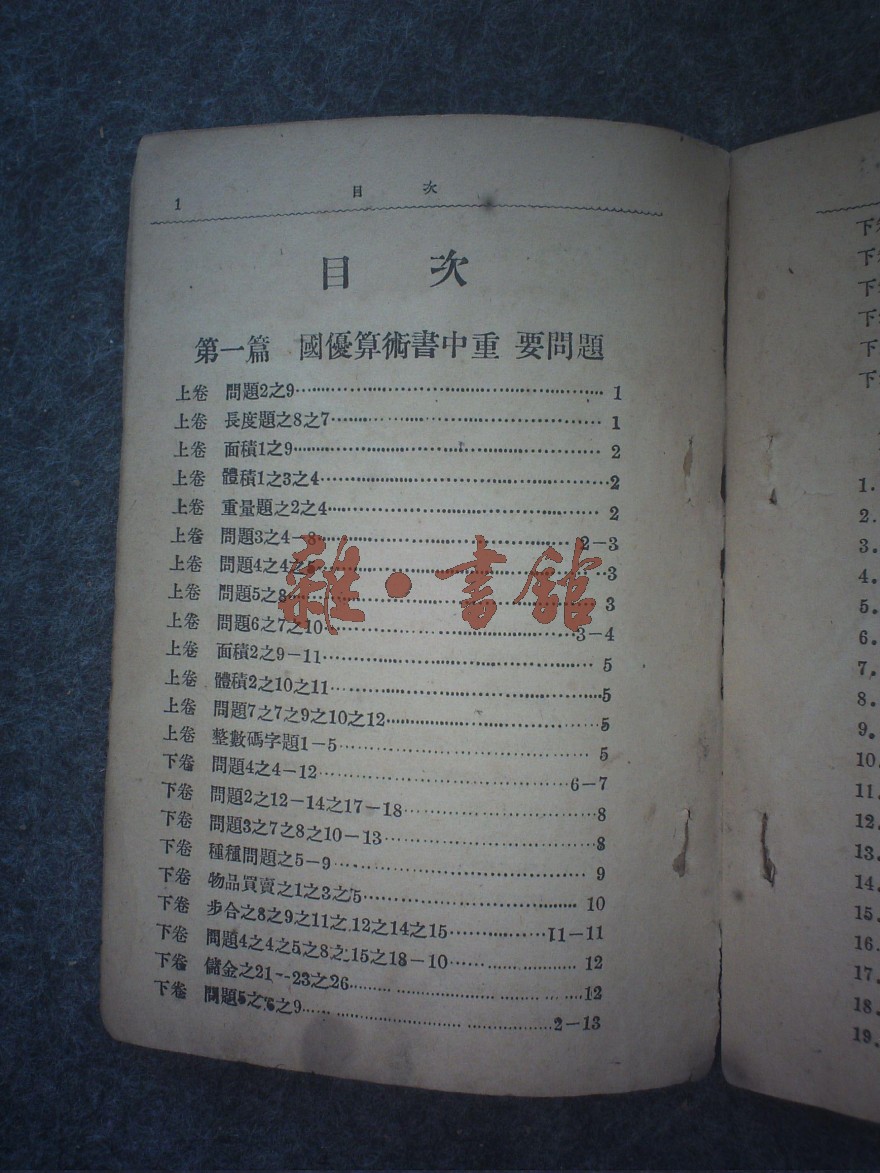 1 目 次
目 次
第一篇 國優算術書中重 要問題
上卷 問題2之9 1
上卷 長度題之8之7 1
上卷 面積1之9 2
上卷 體積1之3之4 2
上卷 重量題之2之4 2
上卷 問題3之4-8 2-3
上卷 問題4之4之5 3
上卷 問題5之8 3
上卷 問題6之7之10 3-4
上卷 面積2之9-11 5
上卷 體積2之10之11 5
上卷 問題7之7之9之10之12 5
上卷 整數碼字題1-5 5
下卷 問題4之4-12 6-7
下卷 問題2之12-14之17-18 8
下卷 問題3之7之8之10-13 8
下卷 種種問題之5-9 9
下卷 物品買賣之1之3之5 10
下卷 步合之8之9之11之12之14之15 11-11
下卷 問題4之4之5之8之15之18-10 12
下卷 儲金之21--23之26 12
下卷 問題5之6之9 2-13
雜·書館
下
下
下
下
下
下
1.
2.
3.
4.
5.
6.
7.
8.
9.
10.
11.
12.
13.
14.
15.
16.
17.
18.
19.